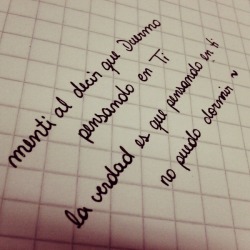 menti al decir que Duermo
pensando en Ti
la verdad es que pensando en ti
no puedo dormir